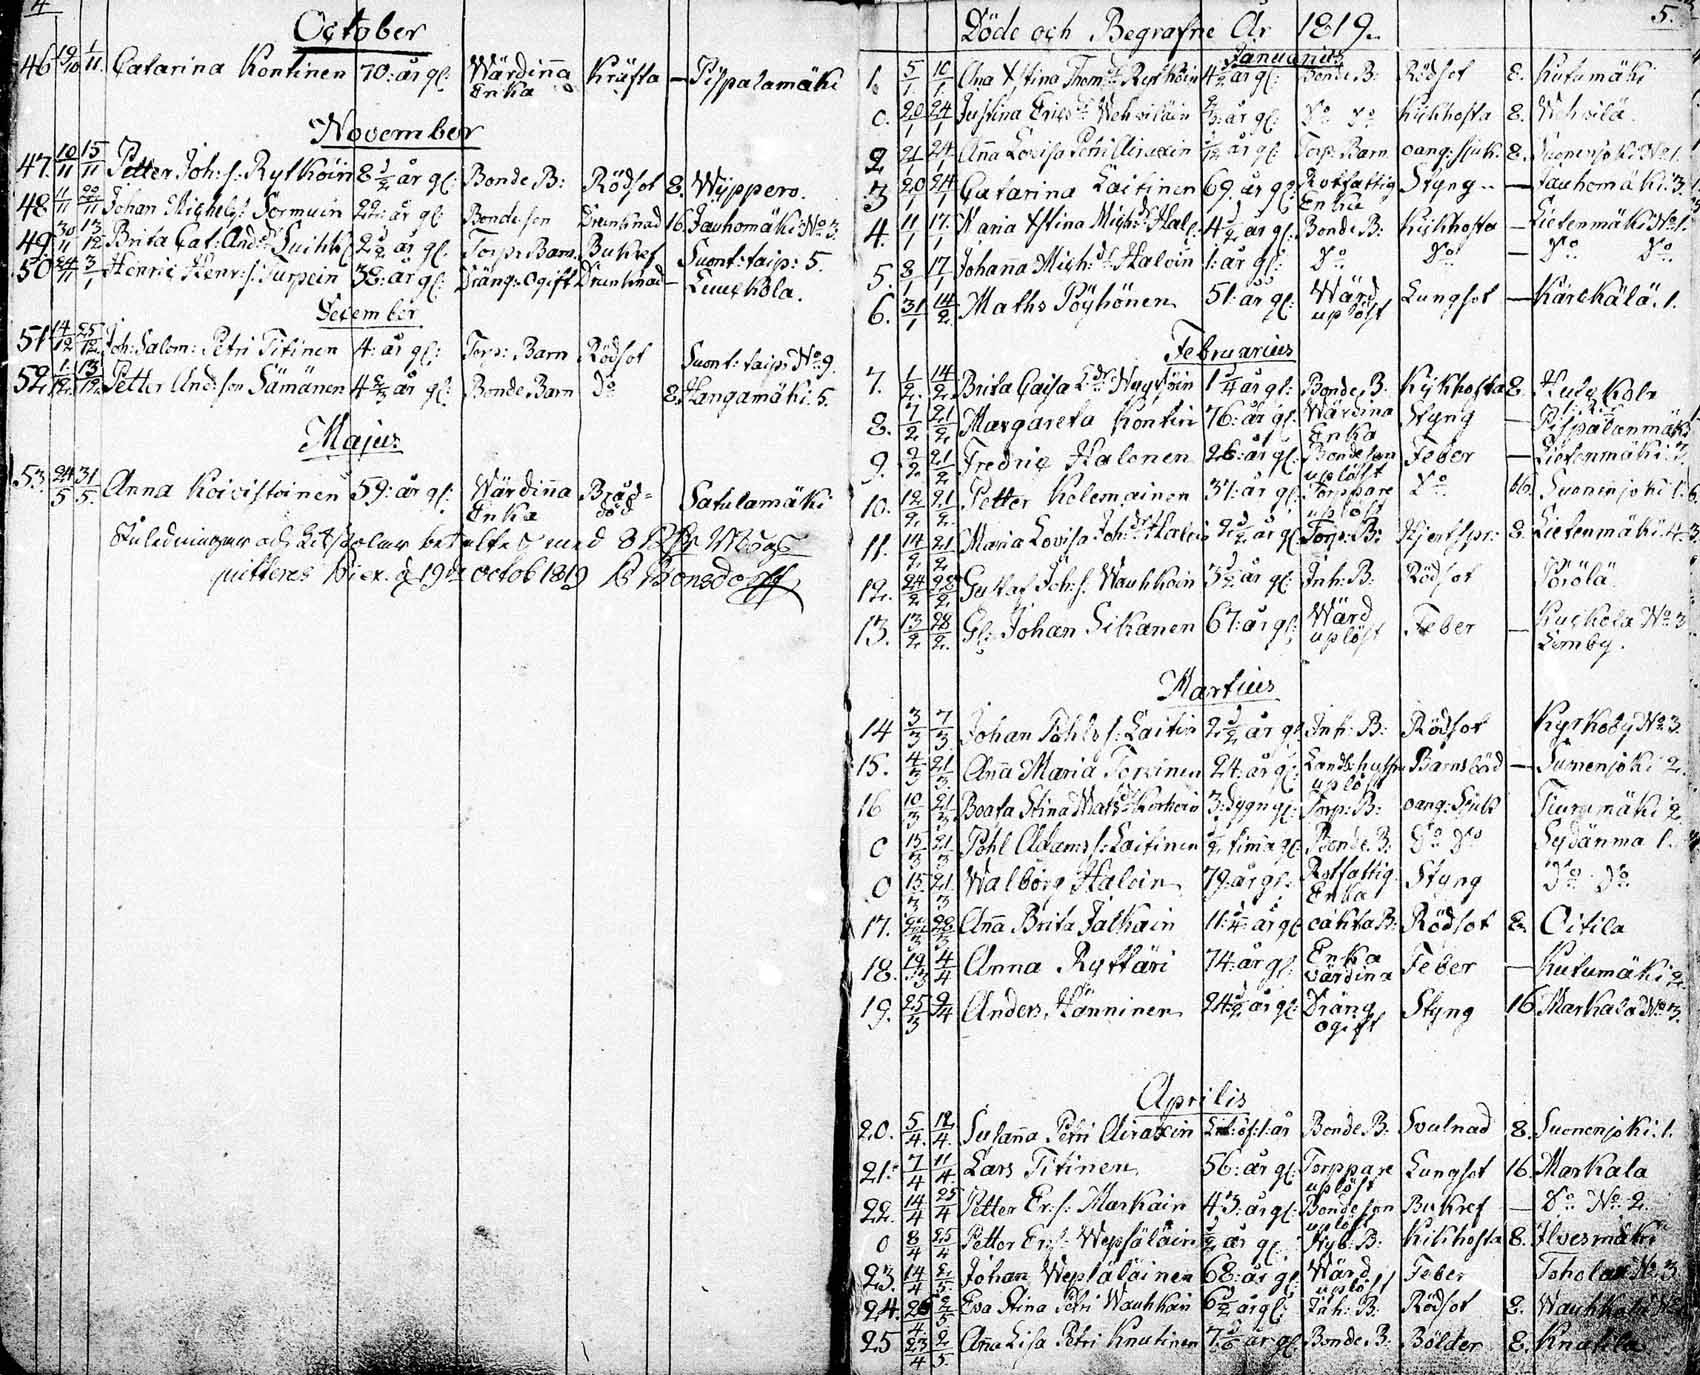 4
October
46 19/10 1/11. Catarina Kontinen 70: år gl: Wärdinna Enka Kräfta — Pispalamäki
November
47. 10/11 15/11 Petter Joh: s: Rytköin 8 1/2 år gl: Bonde B: Rödsot 8. Wyppero.
48 11/11 22/11 Johan Michels: Sormuin 22: år gl: Bondeson Drunknad 16. Jauhomäki: No 3.
49. 30/11 13/12 Brita Cat: And: Luihk: 2 1/2 år gl: Torp: Barn Bukref Suont: taip: 5.
50 24/11 3/1 Henric Henr: s: Turpein 38: år gl: Dräng: ogift Drunknad — Leuckola.
December
51 14/12 25/12. Joh: Salom: Petri Titinen 4: år gl: Torp: Barn Rödsot Suont: taip: No 9.
52. 1/12. 13/12. Petter And: son Sämänen 4 2/3 år gl: Bonde Barn Do 8. Hangamäki. 5.
Majus
53. 24/5 31/5. Anna Koivistoinen 59: år gl: Wärdinna Enka Bråd-död Satulamäki
betaltes med 8
19de octob 1819 Bonsdorff
5.
Döde och Begrafne År 1819.
Januarius
1. 5/1 10/1 Ana Stina Thom: Rytköin 4 1/2 år gl: Bonde B: Rödsot 8. Kutumäki
0. 20/1 24/1 Justina Erics: Wehviläin 2/3: år gl: Do Do Kikhosta 8. Wehvilä.
2 21/1 24/1 Anna Lovisa Petri Airaxin 1/12 år gl: Torp: Barn oang: sjuk. 8. Suonenjoki No 1.
3 20/1 24/1 Catarina Laitinen 69. år gl: Rotfattig Enka Styng — Jauhomäki: 3
4. 11/1 17/1 Maria Stina Mich: Hal: 4 1/2 år gl: Bonde B: Kikhosta — Lietenmäki No 1.
5. 8/1 17/1 Johanna Mich: Haloin 1: år gl: Do Do — Do Do
6. 31/1 14/2. Maths Pöyhönen 51: år gl: Wärd uplöst Lungsot — Kärckälä. 1.
Februarius
7. 1/2. 14/2. Brita Caisa Nyyssöin 1 1/4 år gl: Bonde B. Kikhosta 8. Hulckola
8. 7/2 21/2 Margareta Kontin 76: år gl: Wärdina Enka Styng — Pispalanmäki
9. 2/2 21/2 Fredric Halonen 26: år gl: Bondeson uplöst Feber — Lietenmäki: 2
10. 12/2 21/2. Petter Kolemainen 37: år gl: Torppare uplöst Do 16. Suonenjoki 1.
11. 14/2 21/2. Maria Lovisa Joh: Haloin 2 1/2 år gl: Torp: B: Hjertspr: 8. Lietenmäki. 4.
12. 24/2 28/2. Gustaf Joh: s. Wauhkoin 3 1/2 år gl: Inh: B: Rödsot Pörölä.
13. 13/2. 28/2. Gl: Johan Sikanen 67: år gl: Wärd uplöst Feber — Kuckola No 3 Lemby.
Martius
14 3/3 7/3 Johan Påhls s: Laitin 2 1/2 år gl: Inh: B: Rödsot Kyrkoby No 3.
15. 4/3 21/3. Anna Maria Torvinen 24: år gl: uplöst Barnsbörd — Suonenjoki 2.
16 10/3 21/3. Beata Stina Mats: Korhoin 3: dygn gl: Torp: B: oang: Sjuk Tiuramäki 2.
0 15/3 21/3 Påhl Adams s: Laitinen 1/2 tima gl: Bonde B: Do Do Sydänma 1.
0 15/3 21/3 Walborg Haloin 79: år gl: Rotfattig Enka Styng Do Do
17. 22/3 28/3 Anna Brita Jalkain 11 1/4 år gl: oäkta B: Rödsot 8. Oitila
18. 19/3 4/4 Anna Ryttäri 74: år gl: Enka värdina Feber — Kutumäki 2.
19. 25/3 9/4 Anders Hänninen 24 1/2 år gl: Dräng ogift Styng 16 Markala No 3.
Aprilis
20. 5/4. 12/4. Susanna Petri Airaxin 1: år Bonde B: Svulnad 8. Suonenjoki. 1.
21. 7/4 11/4. Lars Titinen 56: år gl: Torppare uplöst Lungsot 16. Markala
22. 14/4 25/4 Petter Er: s: Markain 43: år gl: Bondeson uplöst Bukref — Do No 2.
0 8/4 25/4 Petter Er: s: Wepsäläin 1/2 år gl: Nyb: B: Kikhosta 8. Ilvesmäki
23. 14/4 2/5 Johan Wepsäläinen 68: år gl: Wärd uplöst Feber Toholax No 3
24. 26/4 2/5 Eva Stina Petri Wauhkoin 6 1/2 år gl: Inh: B: Rödsot 8. Wauhkola No
25 23/4 2/5. Anna Lisa Petri Knutinen 7 1/6 år gl: Bonde B: Bölder 8. Knutila